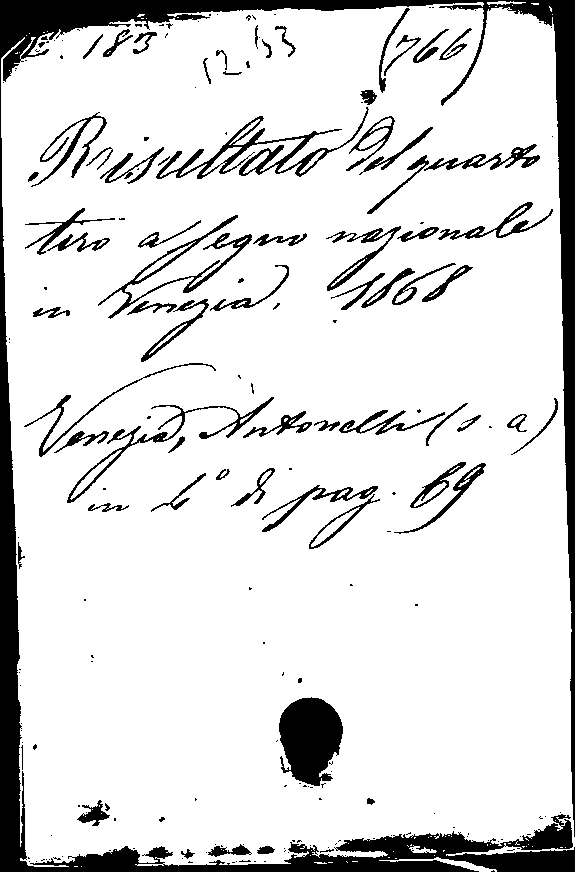 183 12.53 (766)
Risultato del quarto
tiro a segno nazionale
in Venezia. 1868
Venezia, Antonelli (s. a)
in 4° di pag. 69